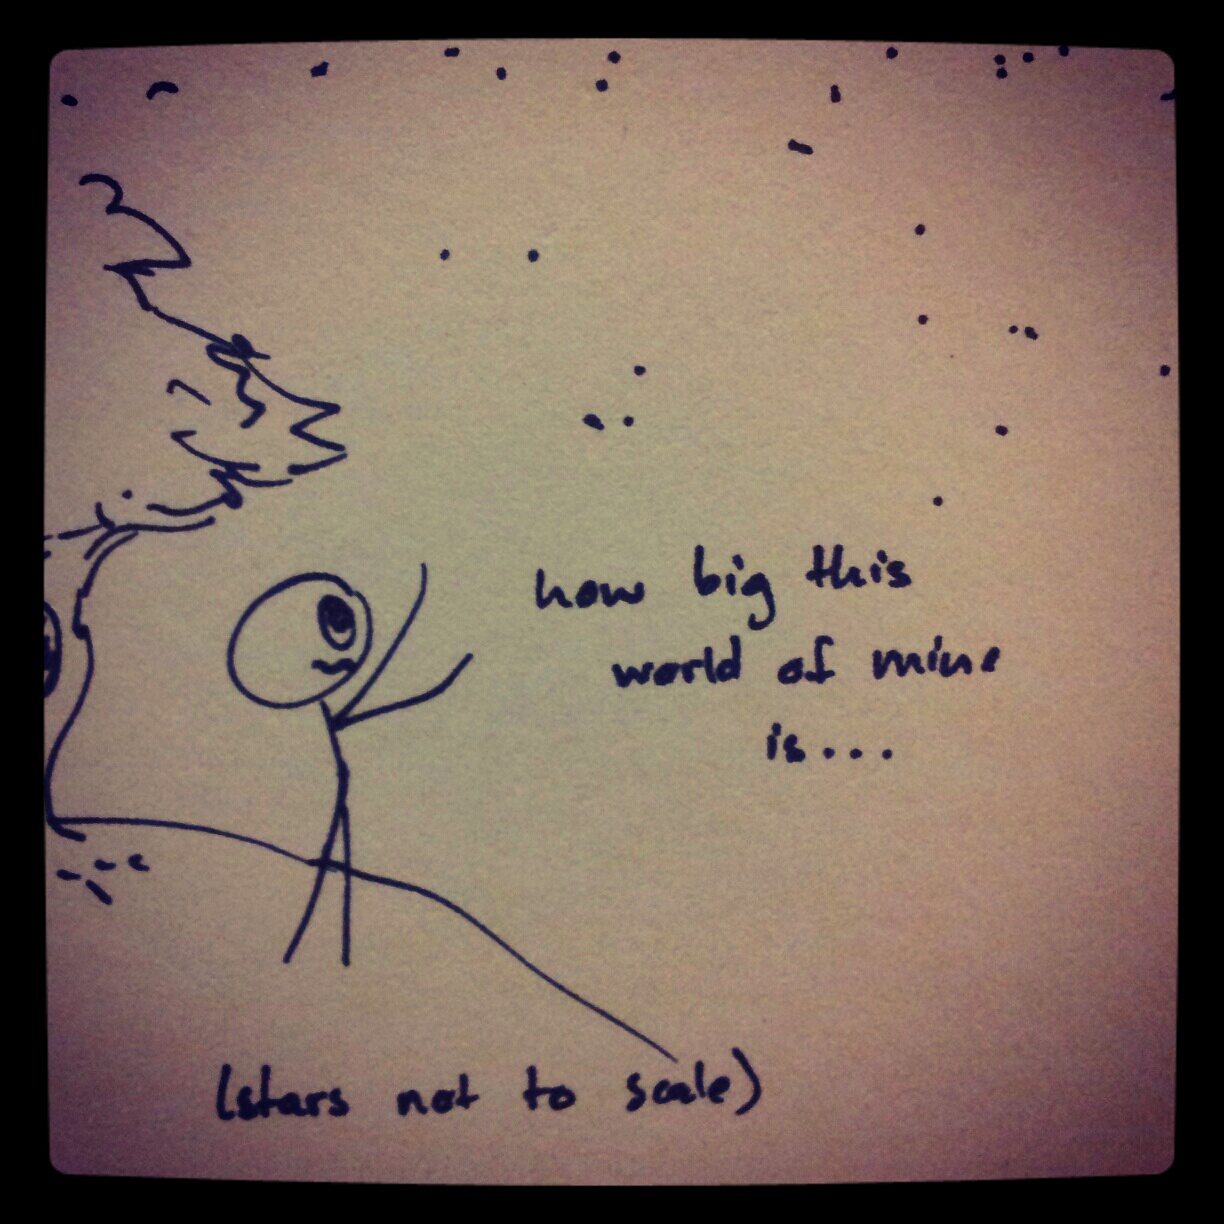 how big this
world of mine
is...
(stars not to scale)